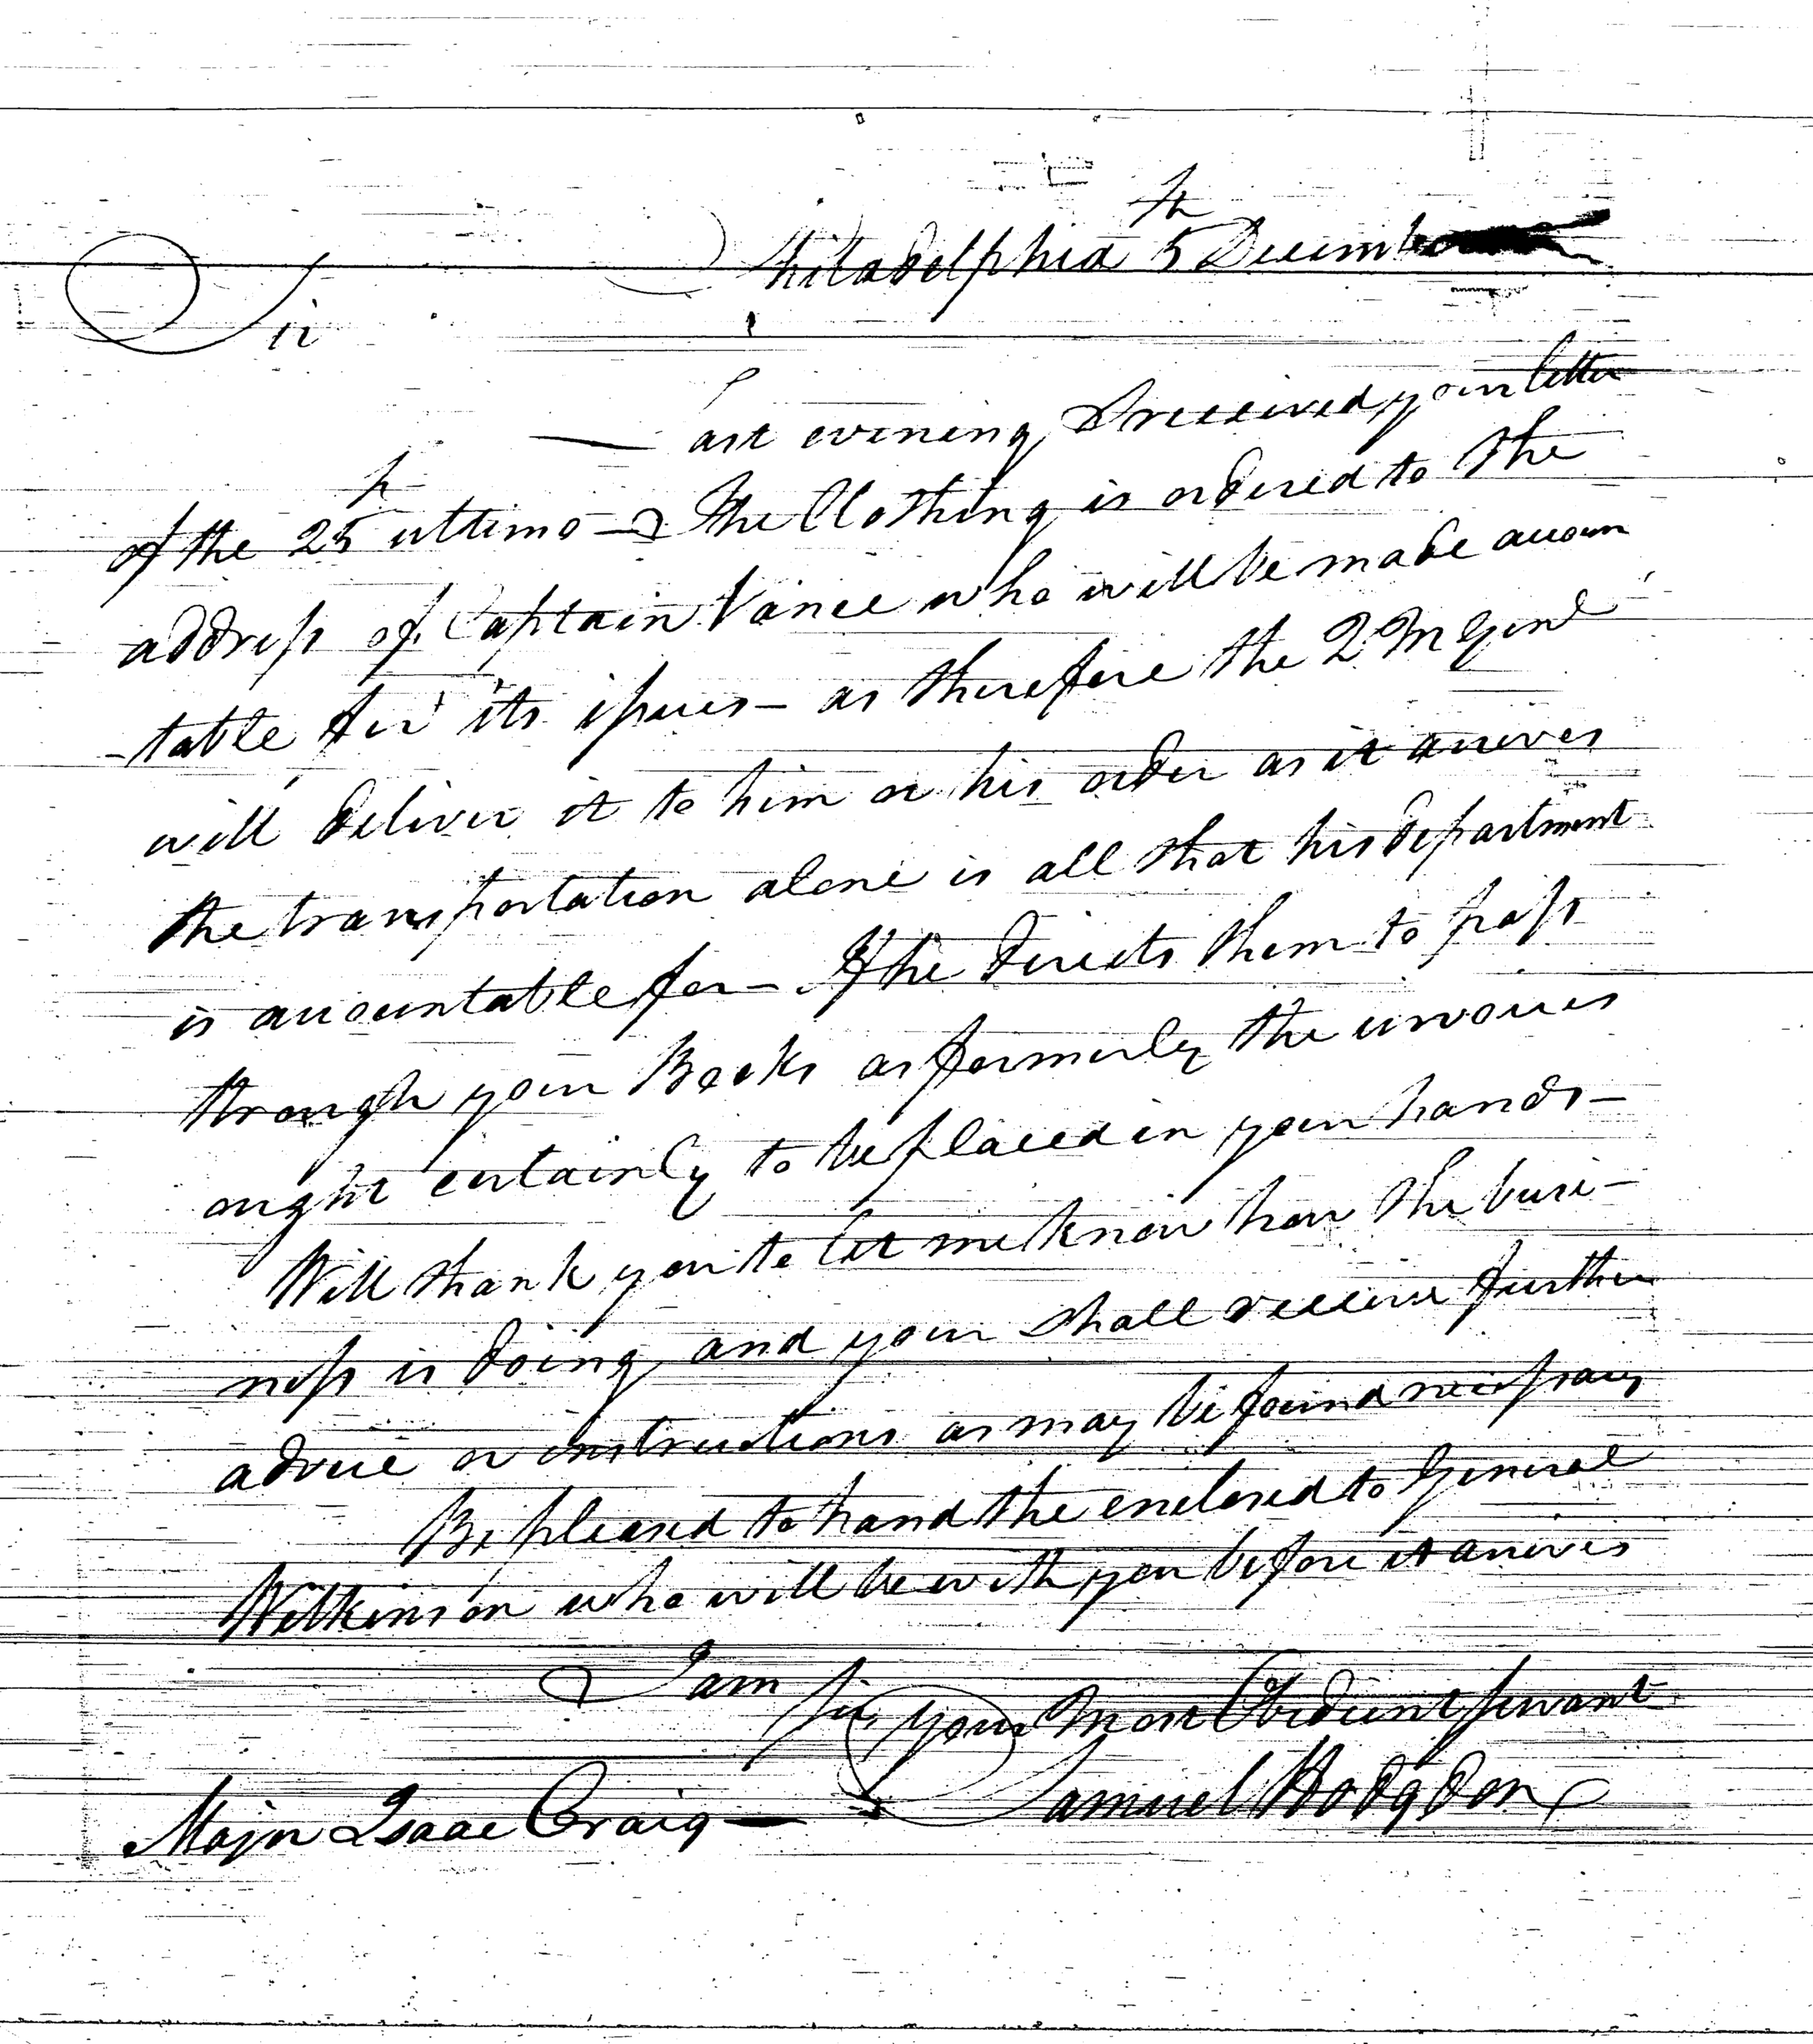 Philadelphia 5th December
Sir
Last evening I received your letter
of the 25th ultimo — The Clothing is ordered to the
address of Captain Vance who will be made accoun
-table for its issues — as therefore the Q M Genl
will deliver it to him or his order as it arrives
the transportation alone is all that his department
is accountable for — If he directs them to pass
through your Books as formerly the invoices
ought certainly to be placed in your hands —
Will thank you to let me know how the busi-
ness is doing and your shall receive further
advice or instructions as may be found necessary
Be pleased to hand the enclosed to General
Wilkinson who will be with you before it arrives
I am
Sir, your Most Obedient servant
Samuel Hodgdon
Major Isaac Craig —